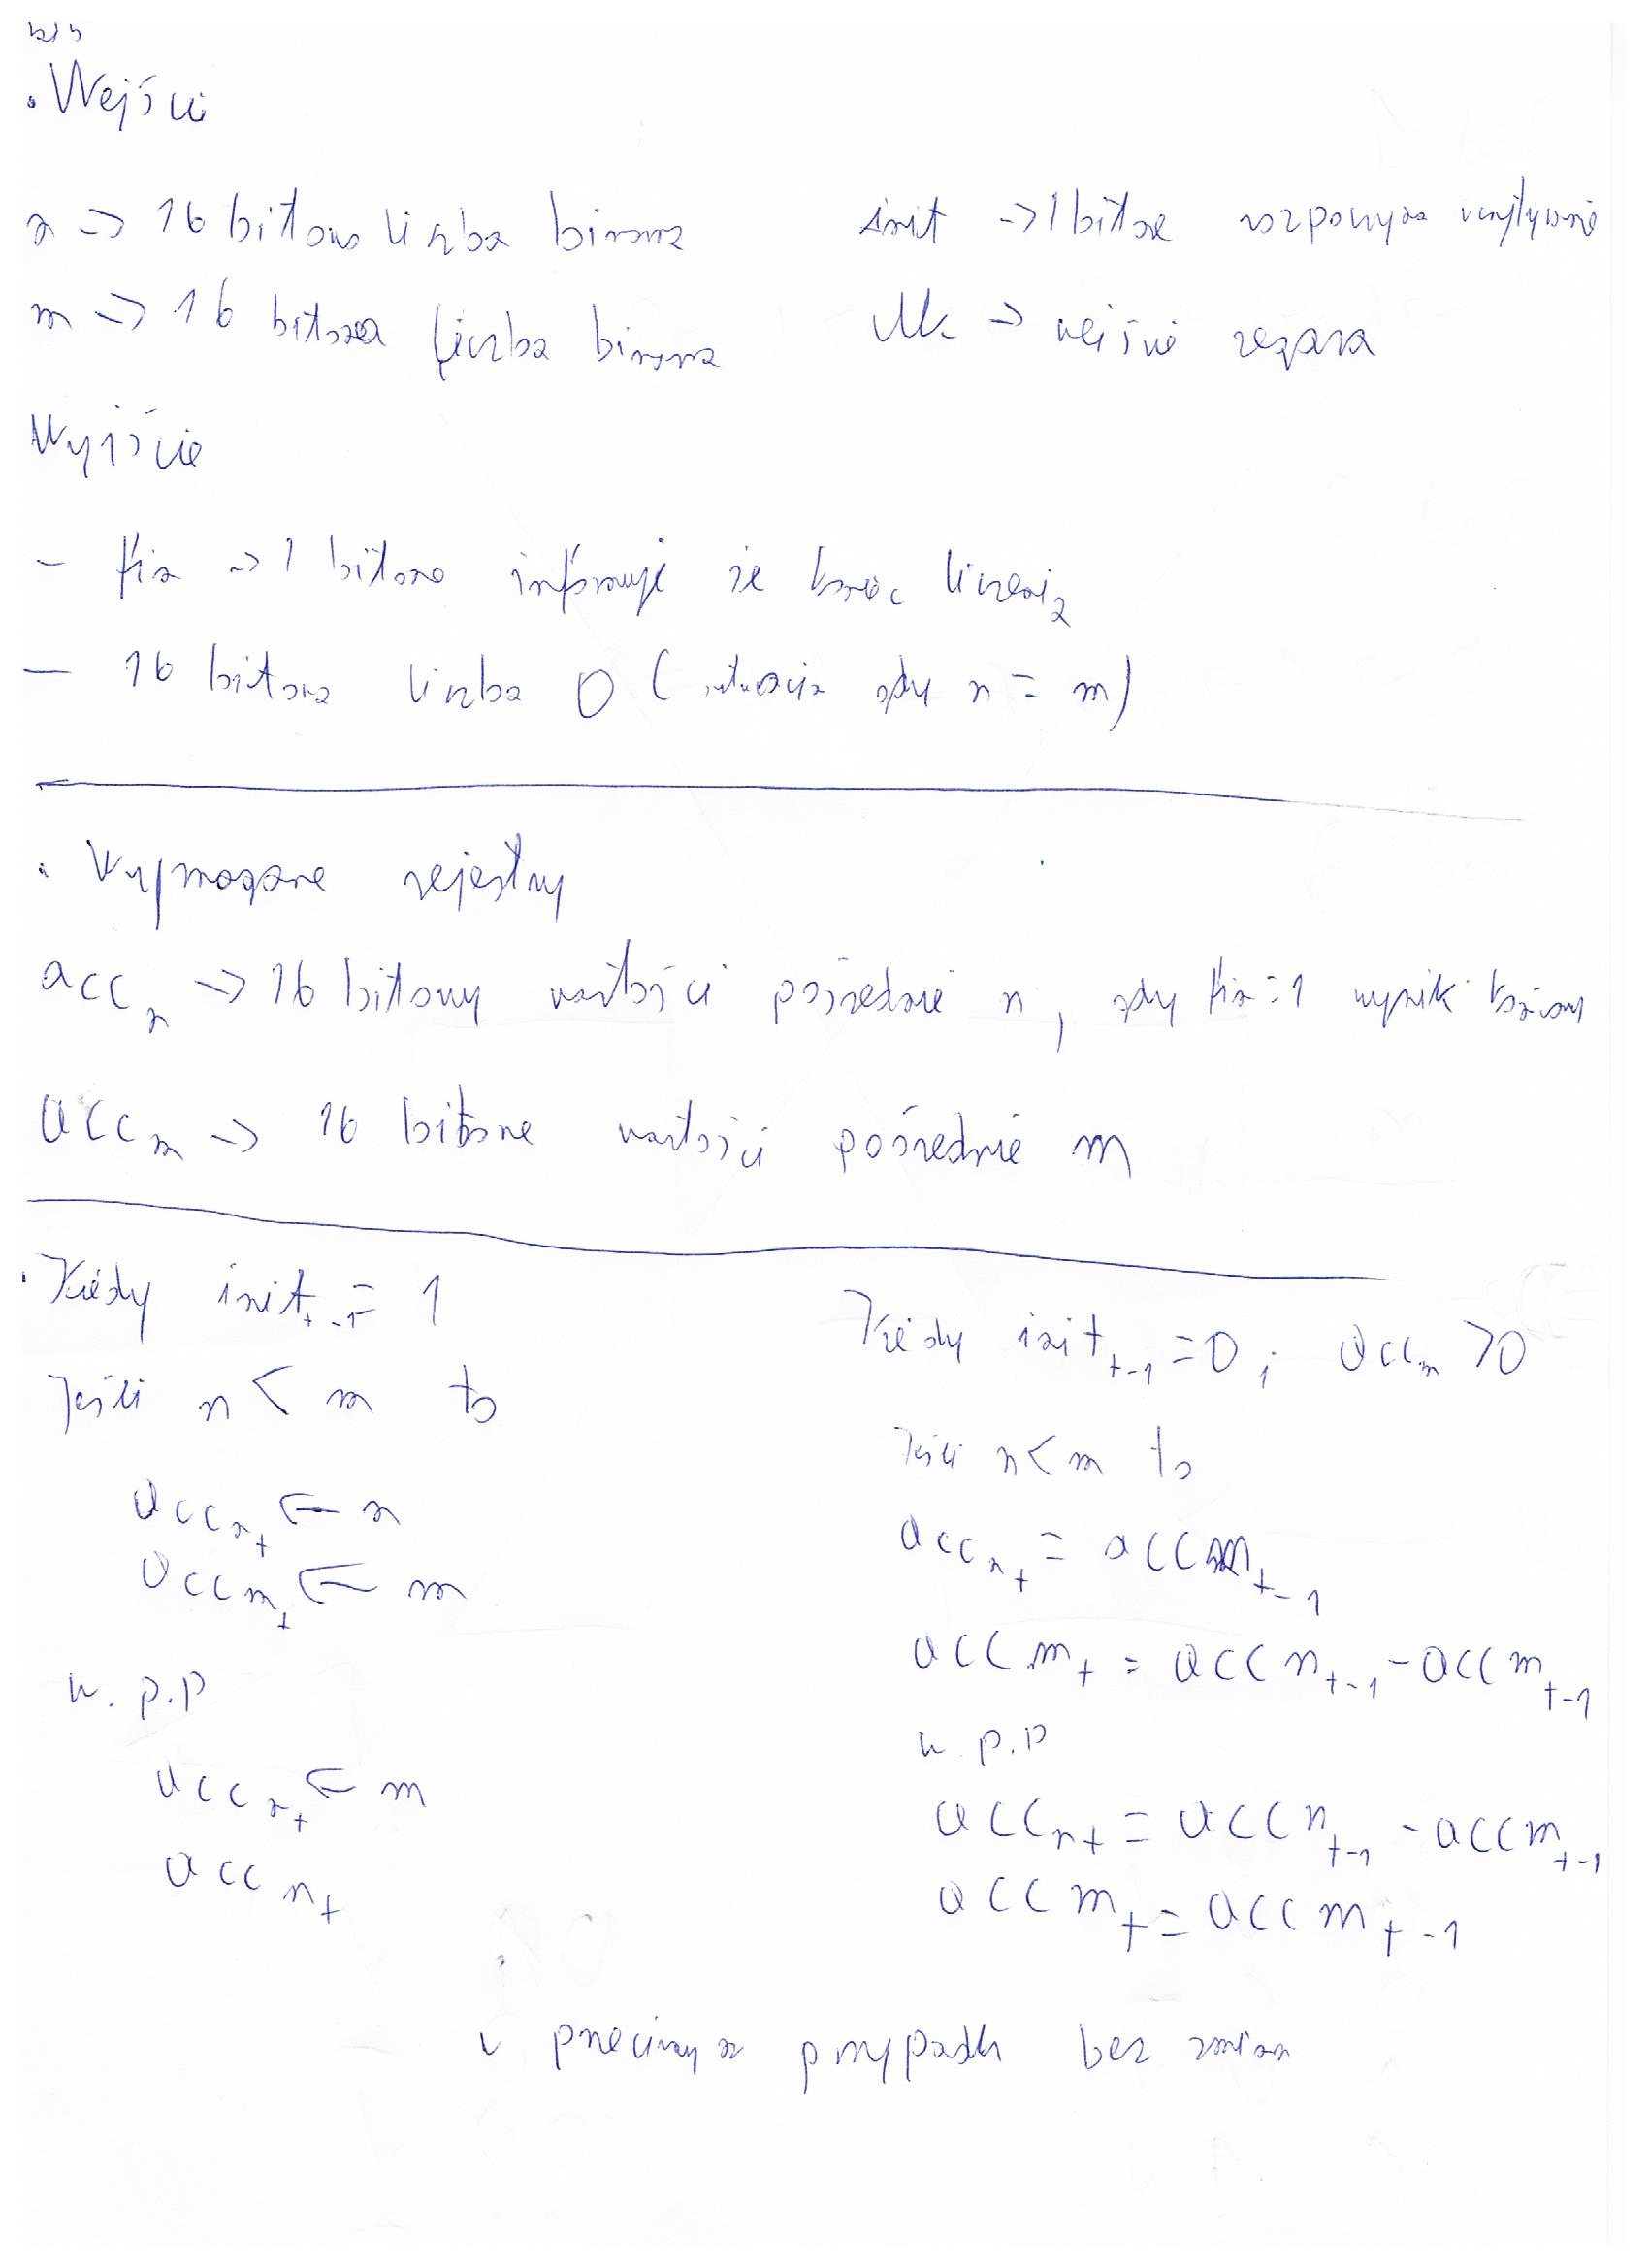 . Wejści
n -> 16 bitowa liczba binarna
init -> 1 bitowe rozpoczyna wczytywanie
m -> 16 bitowa liczba binarna
clk -> wejście zegara
Wyjście
- fin -> 1 bitowe informuje że koniec liczenia
- 16 bitowa liczba O ( sytuacja gdy n = m)
. Wymagane rejestry
acc n -> 16 bitowy wartości pośrednie n, gdy fin = 1 wynik końcowy
acc m -> 16 bitowe wartości pośrednie m
. Kiedy init t-1 = 1
Jeśli n < m to
acc n t <- n
acc m t <- m
w.p.p
acc n t <- m
acc n t
Kiedy init t-1 = 0 i acc m > 0
Jeśli n < m to
acc n t = acc m t-1
acc m t = acc n t-1 - acc m t-1
w.p.p
acc n t = acc n t-1 - acc m t-1
acc m t = acc m t-1
w przeciwnym przypadku bez zmian